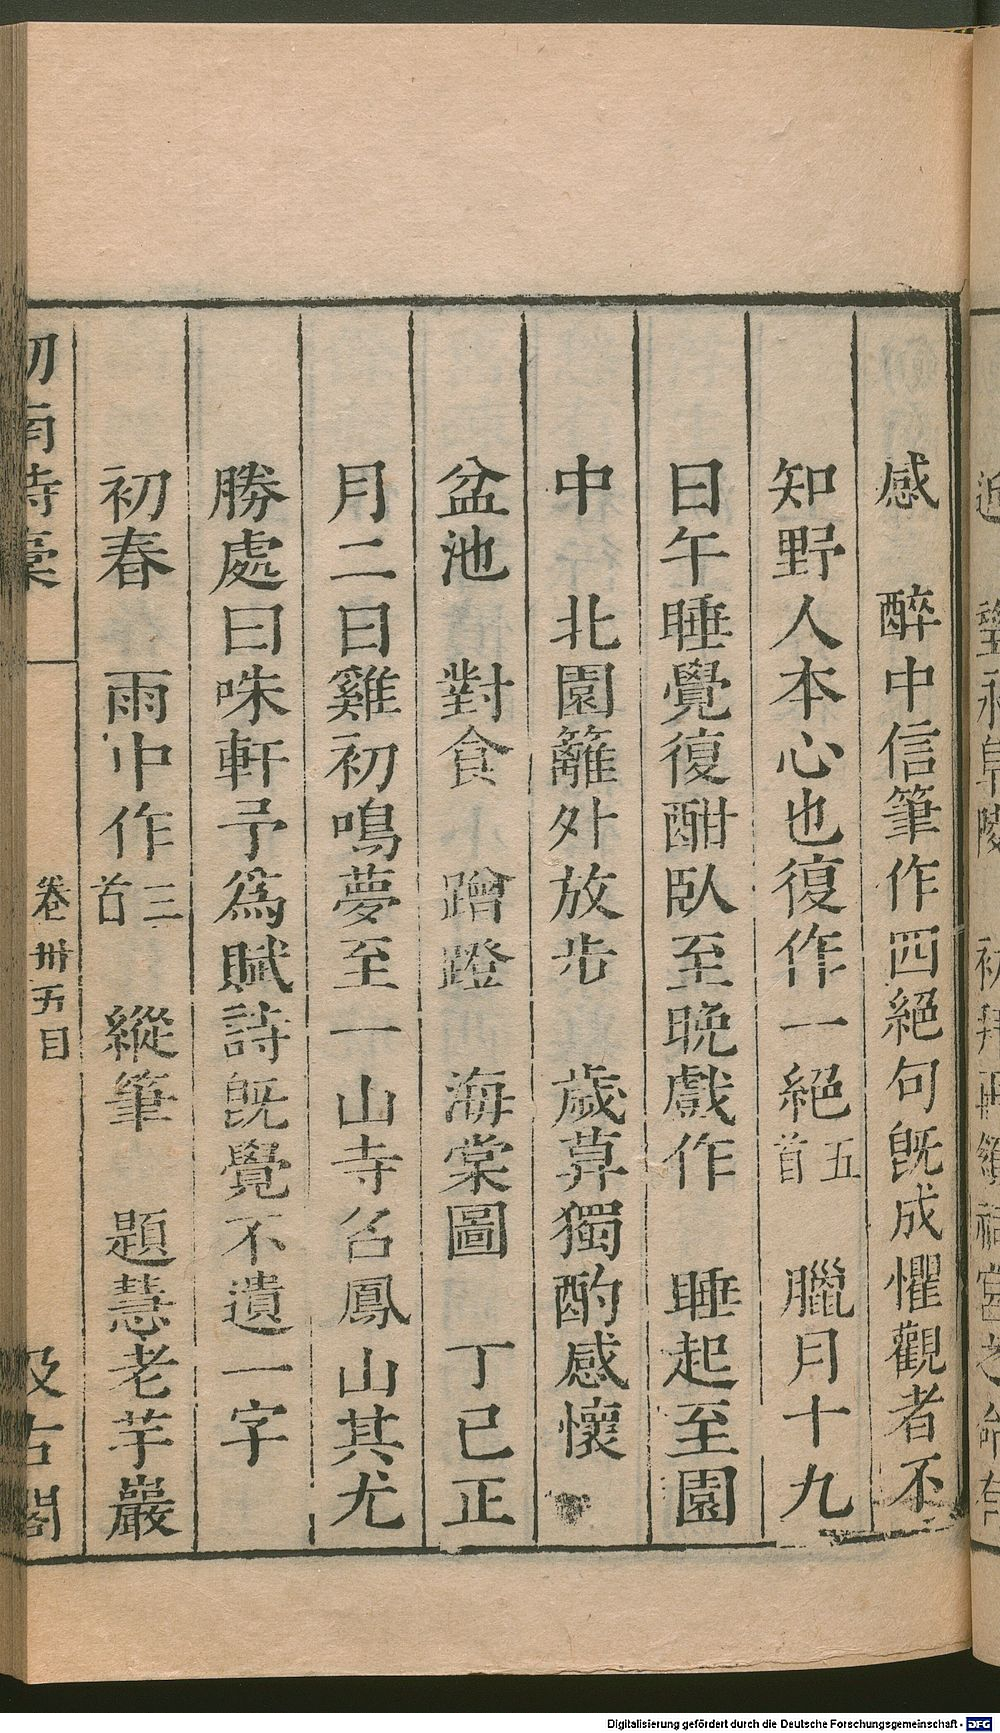 感　醉中信筆作四絕句旣成懼觀者不
知野人本心也復作一絕五首　臘月十九
日午睡覺復酣臥至晚戲作　睡起至園
中　北園籬外放步　歲暮獨酌感懷
盆池　對食　蹭蹬　海棠圖　丁巳正
月二日雞初鳴夢至一山寺名鳳山其尤
勝處曰咮軒予爲賦詩旣覺不遺一字
初春　雨中作三首　縱筆　題慧老芋巖
劒南詩稾　卷卅五目　汲古閣
Digitalisierung gefördert durch die Deutsche Forschungsgemeinschaft - DFG